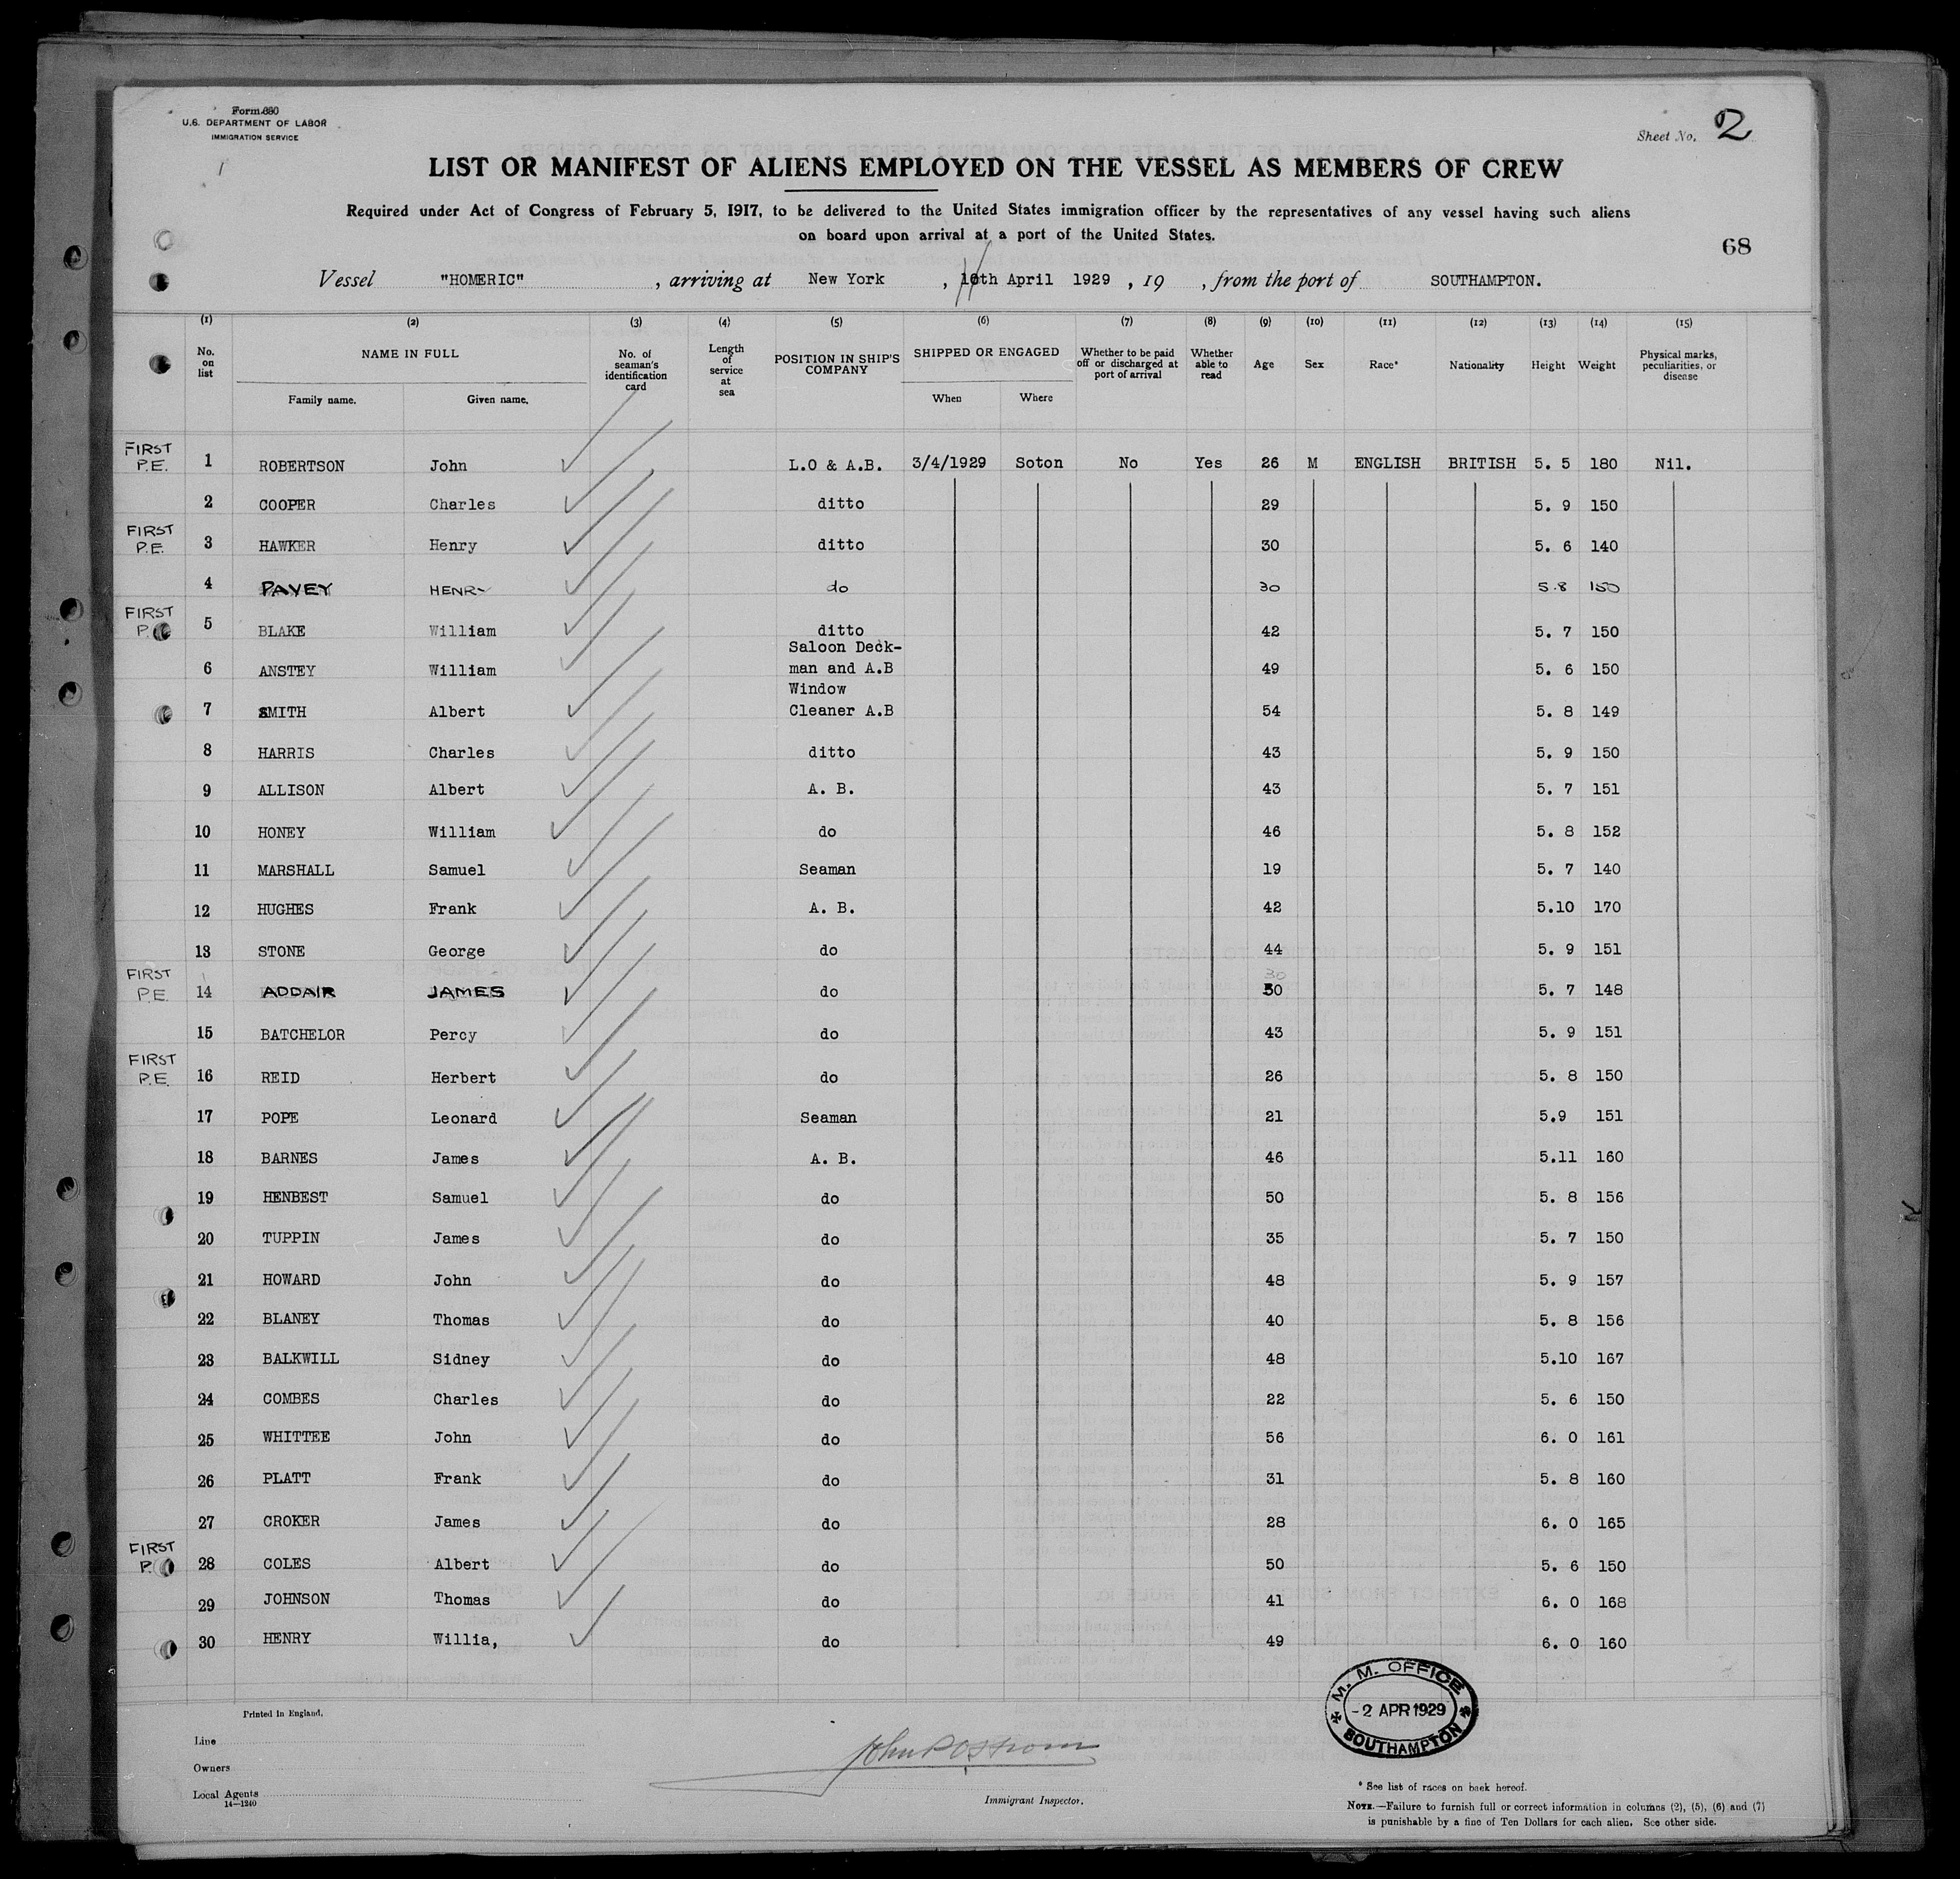 Form 680
U.S. DEPARTMENT OF LABOR
IMMIGRATION SERVICE
Sheet No. 2
LIST OR MANIFEST OF ALIENS EMPLOYED ON THE VESSEL AS MEMBERS OF CREW
Required under Act of Congress of February 5, 1917, to be delivered to the United States immigration officer by the representatives of any vessel having such aliens
on board upon arrival at a port of the United States.
68
Vessel "HOMERIC", arriving at New York, 10th April 1929, 19 , from the port of SOUTHAMPTON.
(1) (2) (3) (4) (5) (6) (7) (8) (9) (10) (11) (12) (13) (14) (15)
No. on list NAME IN FULL Family name. Given name. No. of seaman's identification card Length of service at sea POSITION IN SHIP'S COMPANY SHIPPED OR ENGAGED When Where Whether to be paid off or discharged at port of arrival Whether able to read Age Sex Race* Nationality Height Weight Physical marks, peculiarities, or disease
FIRST P.E. 1 ROBERTSON John L.O & A.B. 3/4/1929 Soton No Yes 26 M ENGLISH BRITISH 5. 5 180 Nil.
2 COOPER Charles ditto 29 5. 9 150
FIRST P.E. 3 HAWKER Henry ditto 30 5. 6 140
4 PAVEY HENRY do 30 5.8 150
FIRST P. 5 BLAKE William ditto 42 5. 7 150
6 ANSTEY William Saloon Deck-man and A.B 49 5. 6 150
7 SMITH Albert Window Cleaner A.B 54 5. 8 149
8 HARRIS Charles ditto 43 5. 9 150
9 ALLISON Albert A. B. 43 5. 7 151
10 HONEY William do 46 5. 8 152
11 MARSHALL Samuel Seaman 19 5. 7 140
12 HUGHES Frank A. B. 42 5.10 170
13 STONE George do 44 5. 9 151
FIRST P.E. 14 ADDAIR JAMES do 30 30 5. 7 148
15 BATCHELOR Percy do 43 5. 9 151
FIRST P.E. 16 REID Herbert do 26 5. 8 150
17 POPE Leonard Seaman 21 5.9 151
18 BARNES James A. B. 46 5.11 160
19 HENBEST Samuel do 50 5. 8 156
20 TUPPIN James do 35 5. 7 150
21 HOWARD John do 48 5. 9 157
22 BLANEY Thomas do 40 5. 8 156
23 BALKWILL Sidney do 48 5.10 167
24 COMBES Charles do 22 5. 6 150
25 WHITTEE John do 56 6. 0 161
26 PLATT Frank do 31 5. 8 160
27 CROKER James do 28 6. 0 165
FIRST P. 28 COLES Albert do 50 5. 6 150
29 JOHNSON Thomas do 41 6. 0 168
30 HENRY Willia, do 49 6. 0 160
M. M. OFFICE
-2 APR 1929
SOUTHAMPTON
Printed in England.
Line
Owners
Local Agents
14—1240
Immigrant Inspector.
* See list of races on back hereof.
NOTE.—Failure to furnish full or correct information in columns (2), (5), (6) and (7)
is punishable by a fine of Ten Dollars for each alien. See other side.